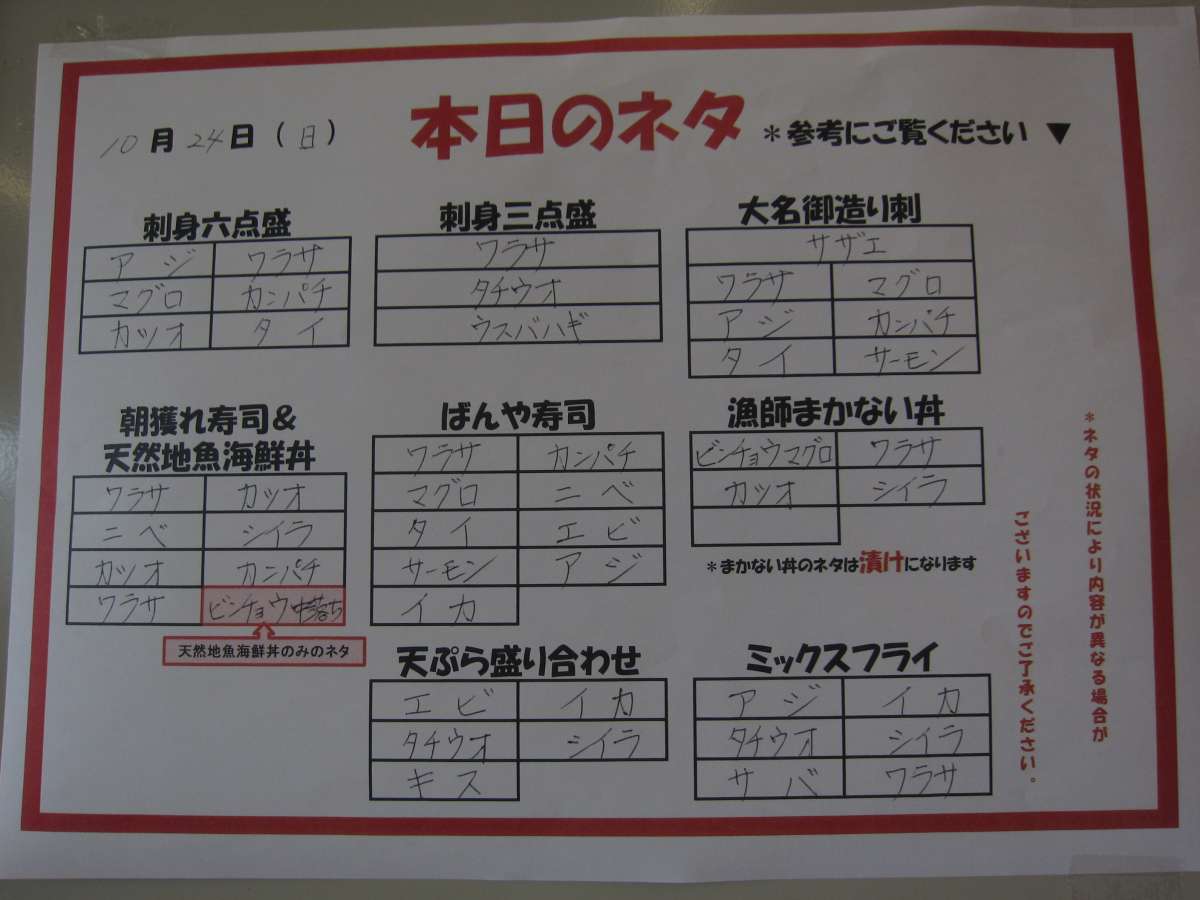 10月24日(日) 本日のネタ *参考にご覧ください ▼
刺身六点盛
アジ ワラサ
マグロ カンパチ
カツオ タイ
刺身三点盛
ワラサ
タチウオ
ウスバハギ
大名御造り刺
サザエ
ワラサ マグロ
アジ カンパチ
タイ サーモン
朝獲れ寿司&
天然地魚海鮮丼
ワラサ カツオ
ニベ シイラ
カツオ カンパチ
ワラサ ビンチョウ中落ち
天然地魚海鮮丼のみのネタ
ばんや寿司
ワラサ カンパチ
マグロ ニベ
タイ エビ
サーモン アジ
イカ
漁師まかない丼
ビンチョウマグロ ワラサ
カツオ シイラ
*まかない丼のネタは漬けになります
天ぷら盛り合わせ
エビ イカ
タチウオ シイラ
キス
ミックスフライ
アジ イカ
タチウオ シイラ
サバ ワラサ
*ネタの状況により内容が異なる場合が
ございますのでご了承ください。